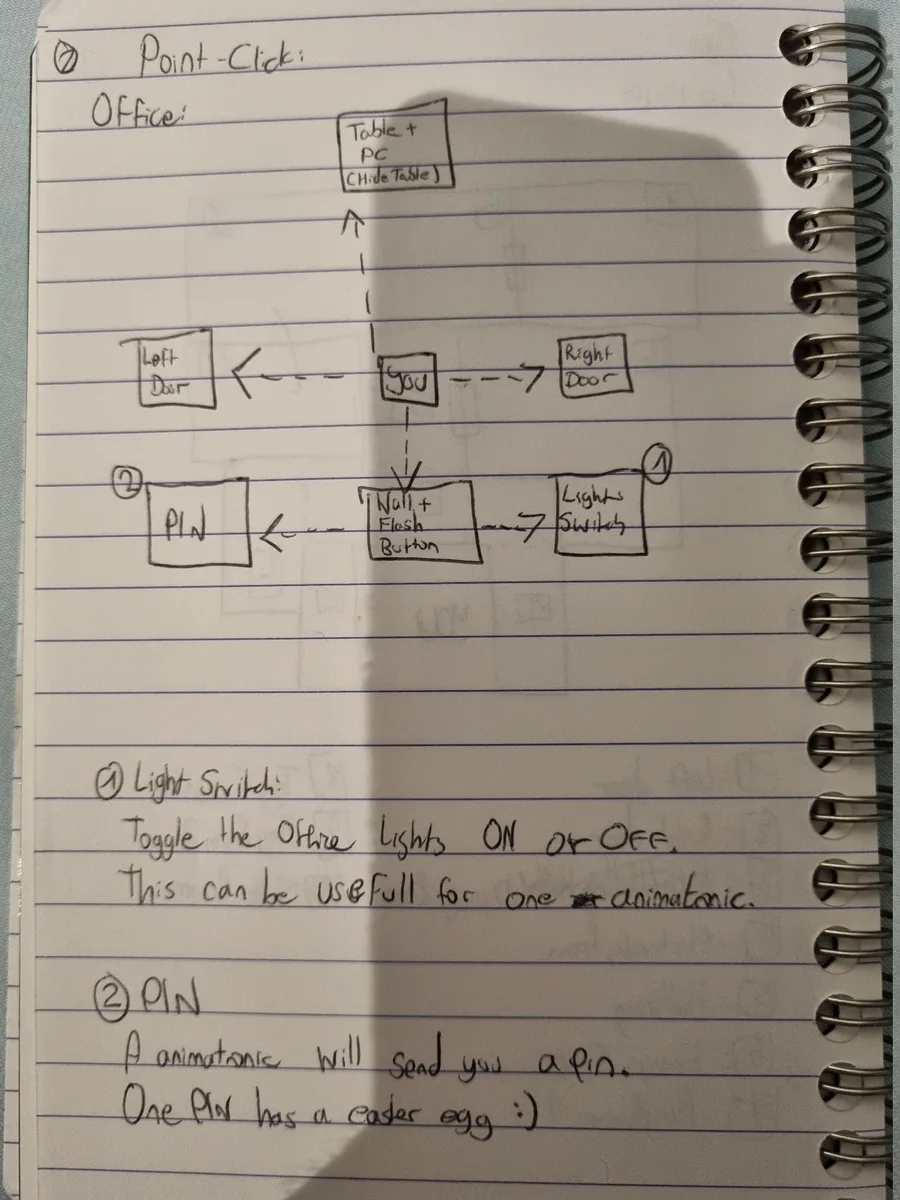 ② Point-Click:
Office:
Table +
PC
(Hide Table)
Left
Door
you
Right
Door
②
PIN
Null +
Flash
Button
Lights
Switch
①
① Light Switch:
Toggle the Office Lights ON or OFF.
This can be usefull for one animatronic.
② PIN
A animatronic will send you a pin.
One PIN has a easter egg :)